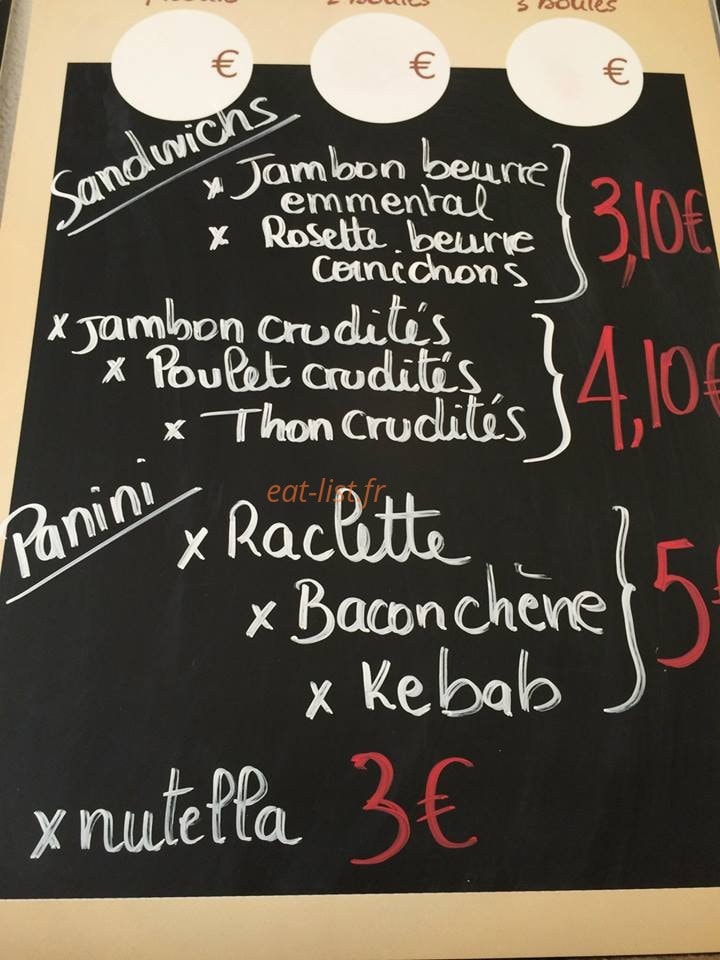 2 Boules
3 Boules
€
€
€
Sandwichs
x Jambon beurre
emmental
x Rosette beurre
cornichons
3,10€
x Jambon crudités
x Poulet crudités
x Thon crudités
4,10€
eat-list.fr
Panini
x Raclette
x Bacon chèvre
x Kebab
5€
x nutella 3€